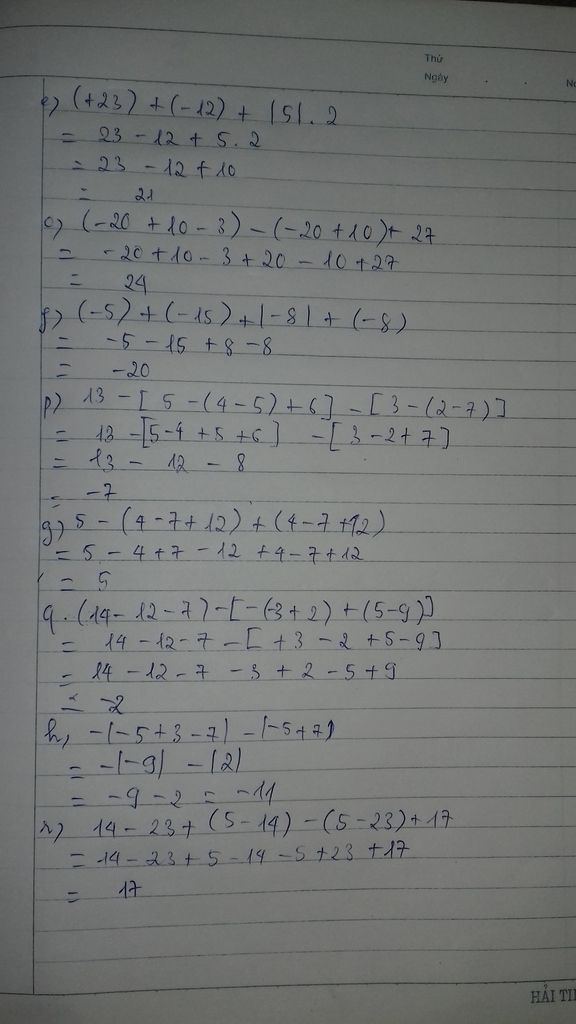 Thứ
Ngày
e) (+23) + (-12) + |5| . 2
= 23 - 12 + 5 . 2
= 23 - 12 + 10
= 21
o) (-20 + 10 - 3) - (-20 + 10) + 27
= -20 + 10 - 3 + 20 - 10 + 27
= 24
f) (-5) + (-15) + |-8| + (-8)
= -5 - 15 + 8 - 8
= -20
p) 13 - [5 - (4 - 5) + 6] - [3 - (2 - 7)]
= 13 - [5 - 4 + 5 + 6] - [3 - 2 + 7]
= 13 - 12 - 8
= -7
g) 5 - (4 - 7 + 12) + (4 - 7 + 12)
= 5 - 4 + 7 - 12 + 4 - 7 + 12
= 5
q. (14 - 12 - 7) - [-(-3 + 2) + (5 - 9)]
= 14 - 12 - 7 - [+3 - 2 + 5 - 9]
= 14 - 12 - 7 - 3 + 2 - 5 + 9
= -2
h, -|-5 + 3 - 7| - |-5 + 7|
= -|-9| - |2|
= -9 - 2 = -11
r) 14 - 23 + (5 - 14) - (5 - 23) + 17
= 14 - 23 + 5 - 14 - 5 + 23 + 17
= 17
HẢI